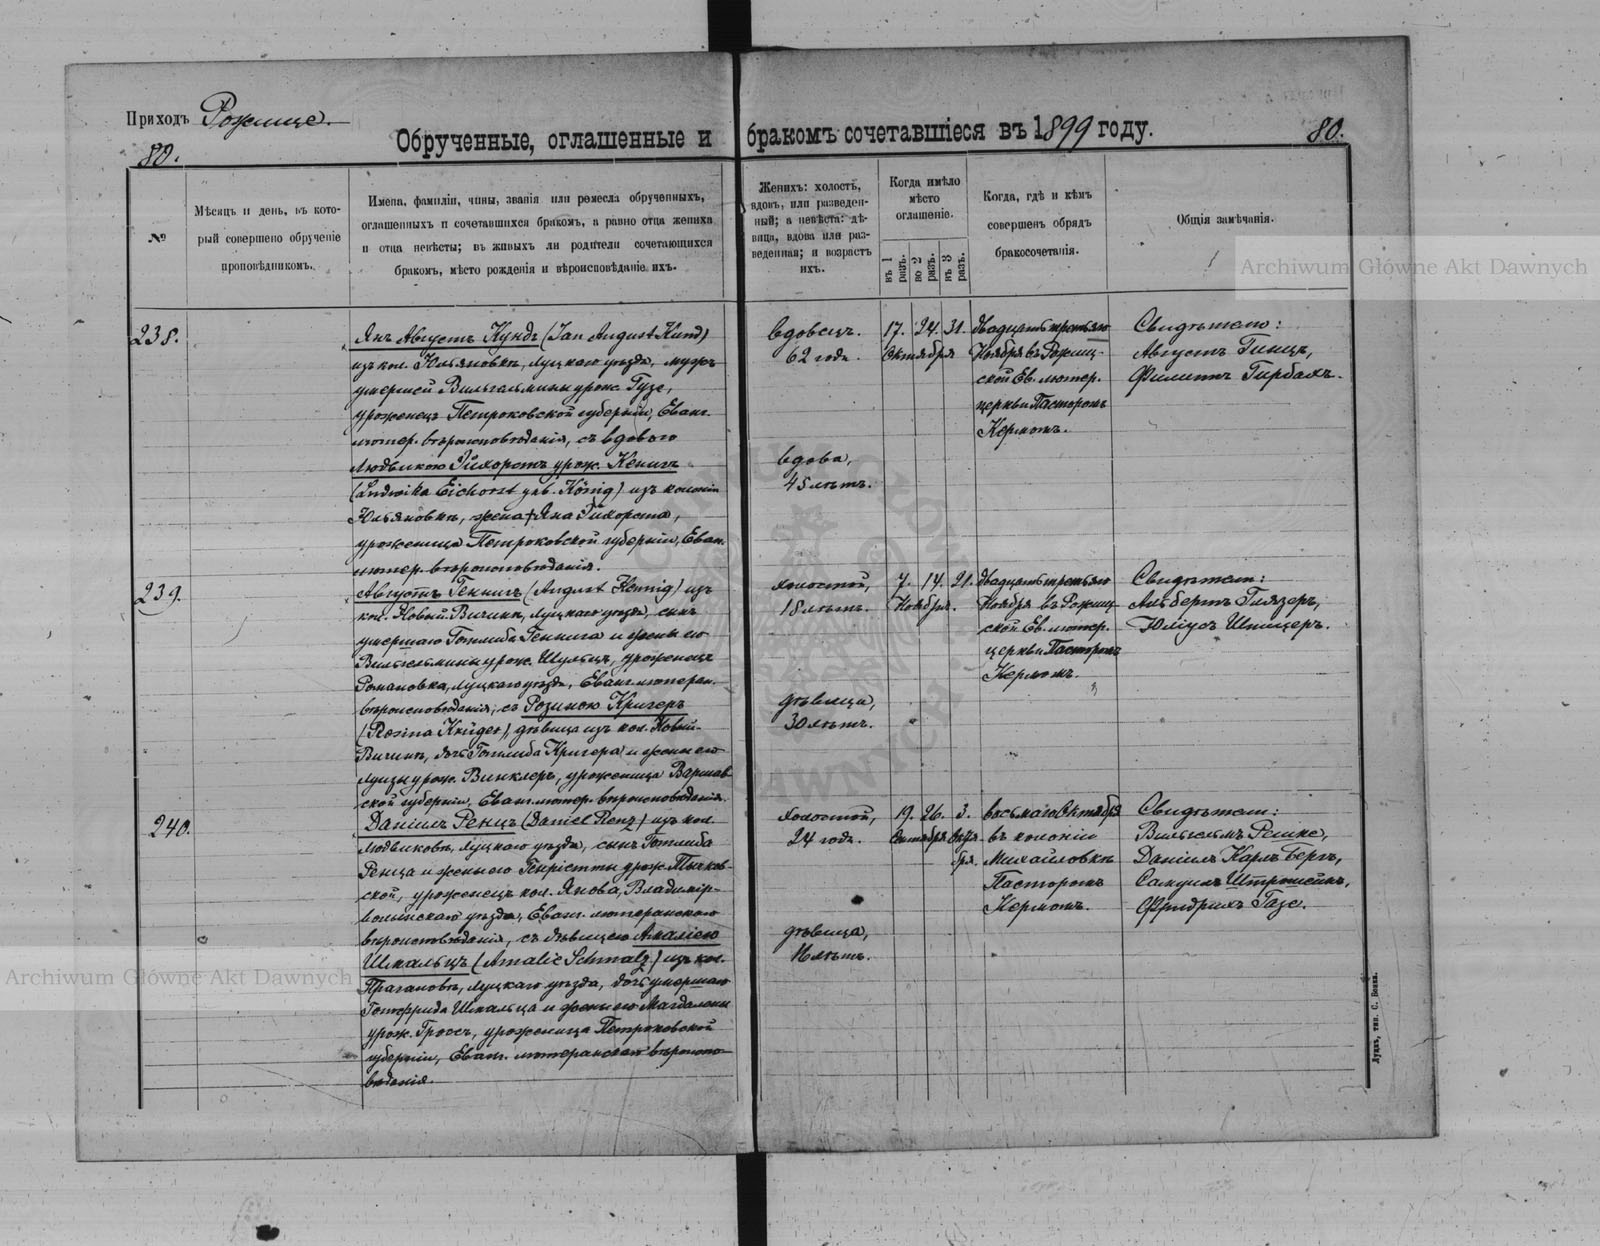 Приходъ Рожище.
Обрученные, оглашенные и бракомъ сочетавшіеся въ 1899 году.
80.
80.
№
Мѣсяцъ и день, въ кото-
рый совершено обрученіе
проповѣдникомъ.
Имена, фамиліи, чины, званія или ремесла обрученныхъ,
оглашенныхъ и сочетавшихся бракомъ, а равно отца жениха
и отца невѣсты; въ живыхъ ли родители сочетающихся
бракомъ, мѣсто рожденія и вѣроисповѣданіе ихъ.
Женихъ: холостъ,
вдовъ, или разведен-
ный; а невѣста: дѣ-
вица, вдова или раз-
веденная; и возрастъ
ихъ.
Когда имѣло
мѣсто
оглашеніе.
въ 1 разъ.
во 2 разъ.
въ 3 разъ.
Когда, гдѣ и кѣмъ
совершенъ обрядъ
бракосочетанія.
Общія замѣчанія.
Archiwum Główne Akt Dawnych
238.
Янъ Августъ Кундъ (Jan August Kund)
изъ кол. Юльяновки, Луцкаго уѣзда, мужъ
умершей Вильгельмины урож. Гузе,
уроженецъ Петроковской губерніи, Еванг.
лютер. вѣроисповѣданія, съ вдовою
Людвикою Эйхорстъ урож. Кенигъ
(Ludwika Eichorst geb. König) изъ колоніи
Юльяновки, жена † Яна Эйхорста,
уроженица Петроковской губерніи, Еван.
лютер. вѣроисповѣданія.
вдовецъ.
62 года.
вдова,
45 лѣтъ.
17. 24. 31.
Октября
двадцать третьяго
Ноября въ Рожищ-
ской Ев. лютер.
церкви Пасторомъ
Кермомъ.
Свидѣтели:
Августъ Гинцъ,
Филиппъ Гирбахъ.
239.
Августъ Геннигъ (August Hennig) изъ
кол. Новый Вичинъ, Луцкаго уѣзда, сынъ
умершаго Готлиба Геннига и жены его
Вильгельмины урож. Шульцъ, уроженецъ
Романовка, Луцкаго уѣзда, Еванг. лютеран.
вѣроисповѣданія, съ Розиною Кригеръ
(Rosina Krüger), дѣвица изъ кол. Новый-
Вичинъ, дочь Готлиба Кригера и жены его
Луизы урож. Винклеръ, уроженица Варшав-
ской губерніи, Еванг. лютер. вѣроисповѣданія.
холостой,
18 лѣтъ.
дѣвица,
30 лѣтъ.
7. 14. 21.
Ноября.
двадцать третьяго
Ноября въ Рожищ-
ской Ев. лютер.
церкви Пасторомъ
Кермомъ.
Свидѣтели:
Альбертъ Глязеръ,
Юліусъ Шпицеръ.
240.
Даніилъ Ренцъ (Daniel Renz) изъ кол.
Людвиковъ, Луцкаго уѣзда, сынъ Готлиба
Ренца и жены его Генріетты урож.
ской, уроженецъ кол. Янова, Владимір-
волынскаго уѣзда, Еванг. лютеранскаго
вѣроисповѣданія, съ дѣвицею Амаліею
Шмальцъ (Amalie Schmalz) изъ кол.
Луцкаго уѣзда, дочь умершаго
Готфрида Шмальца и жены его Магдалены
урож. Гроссъ, уроженица Петроковской
губерніи, Еванг. лютеранскаго вѣроиспо-
вѣданія.
холостой,
24 года.
дѣвица,
16 лѣтъ.
19. 26. 3.
Сентября Октя-
бря.
восьмаго Октября
въ колоніи
Михайловкѣ
Пасторомъ
Кермомъ.
Свидѣтели:
Вильгельмъ Решке,
Даніилъ Карлъ Бергъ,
Самуилъ
Фридрихъ Газе.
Archiwum Główne Akt Dawnych
Луцкъ, тип. С. Бонка.